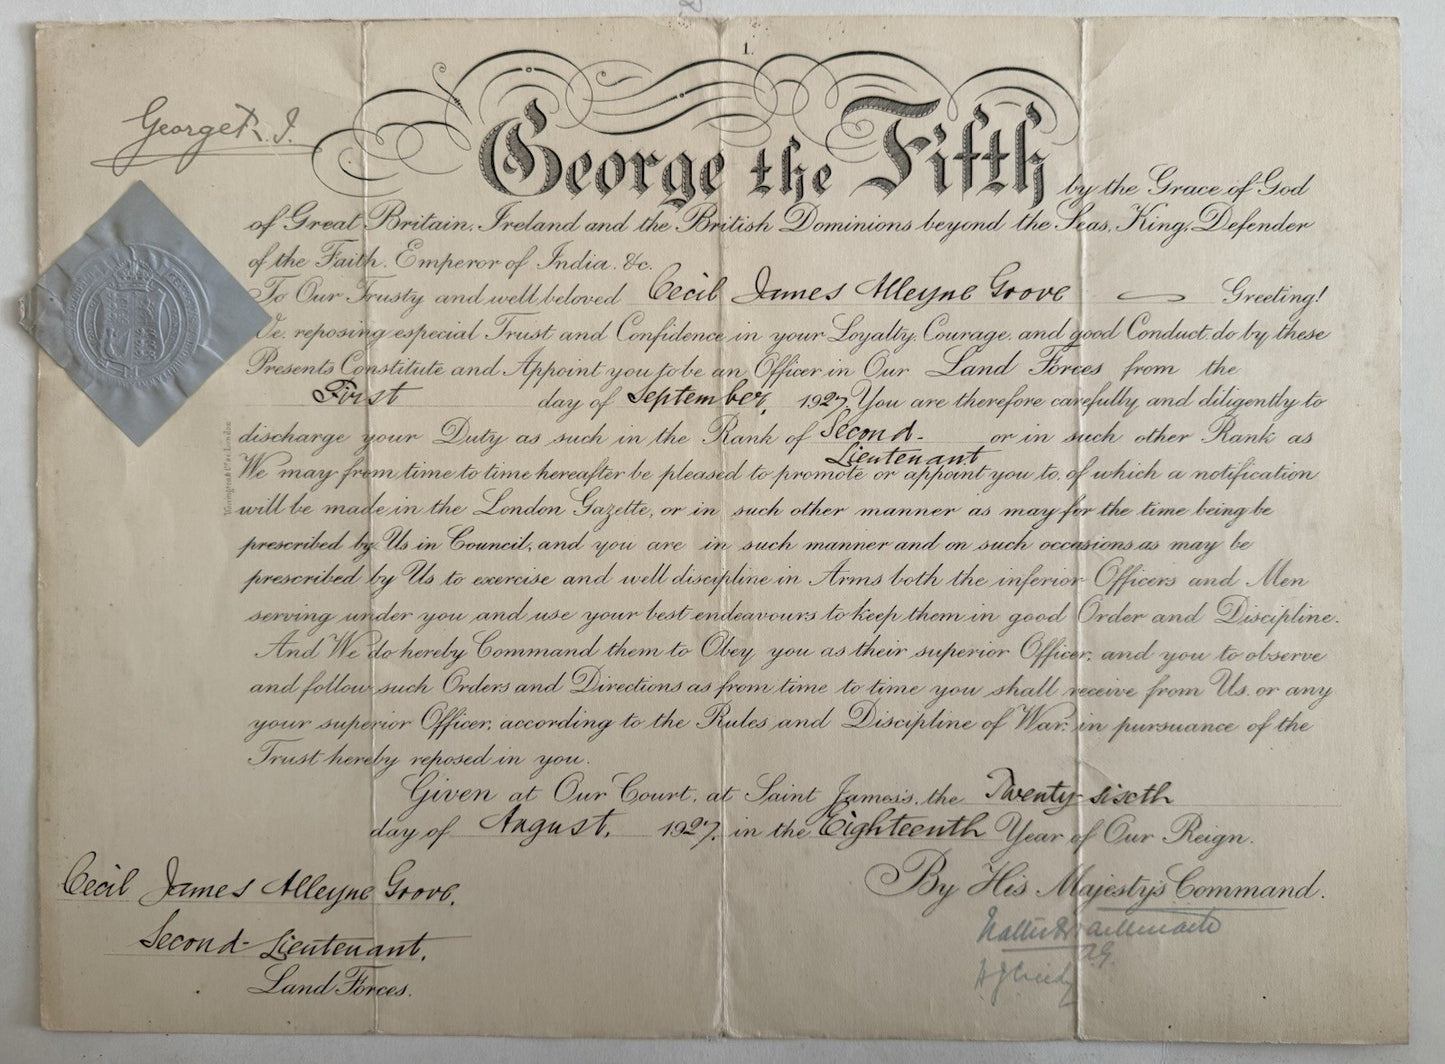 1.
George R. I.
George the Fifth by the Grace of God
of Great Britain, Ireland and the British Dominions beyond the Seas, King, Defender
of the Faith, Emperor of India, &c.
To Our Trusty and well beloved Cecil James Alleyne Grove Greeting!
We, reposing especial Trust and Confidence in your Loyalty, Courage, and good Conduct, do by these
Presents Constitute and Appoint you to be an Officer in Our Land Forces from the
First day of September, 1927. You are therefore carefully and diligently to
discharge your Duty as such in the Rank of Second- or in such other Rank as
Lieutenant
We may from time to time hereafter be pleased to promote or appoint you to, of which a notification
will be made in the London Gazette, or in such other manner as may for the time being be
prescribed by Us in Council, and you are in such manner and on such occasions as may be
prescribed by Us to exercise and well discipline in Arms both the inferior Officers and Men
serving under you and use your best endeavours to keep them in good Order and Discipline.
And We do hereby Command them to Obey you as their superior Officer, and you to observe
and follow such Orders and Directions as from time to time you shall receive from Us, or any
your superior Officer, according to the Rules and Discipline of War, in pursuance of the
Trust hereby reposed in you.
Given at Our Court, at Saint James's, the Twenty-sixth
day of August, 1927, in the Eighteenth Year of Our Reign.
By His Majesty's Command.
A.G.
H J Creedy
Cecil James Alleyne Grove,
Second-Lieutenant,
Land Forces.